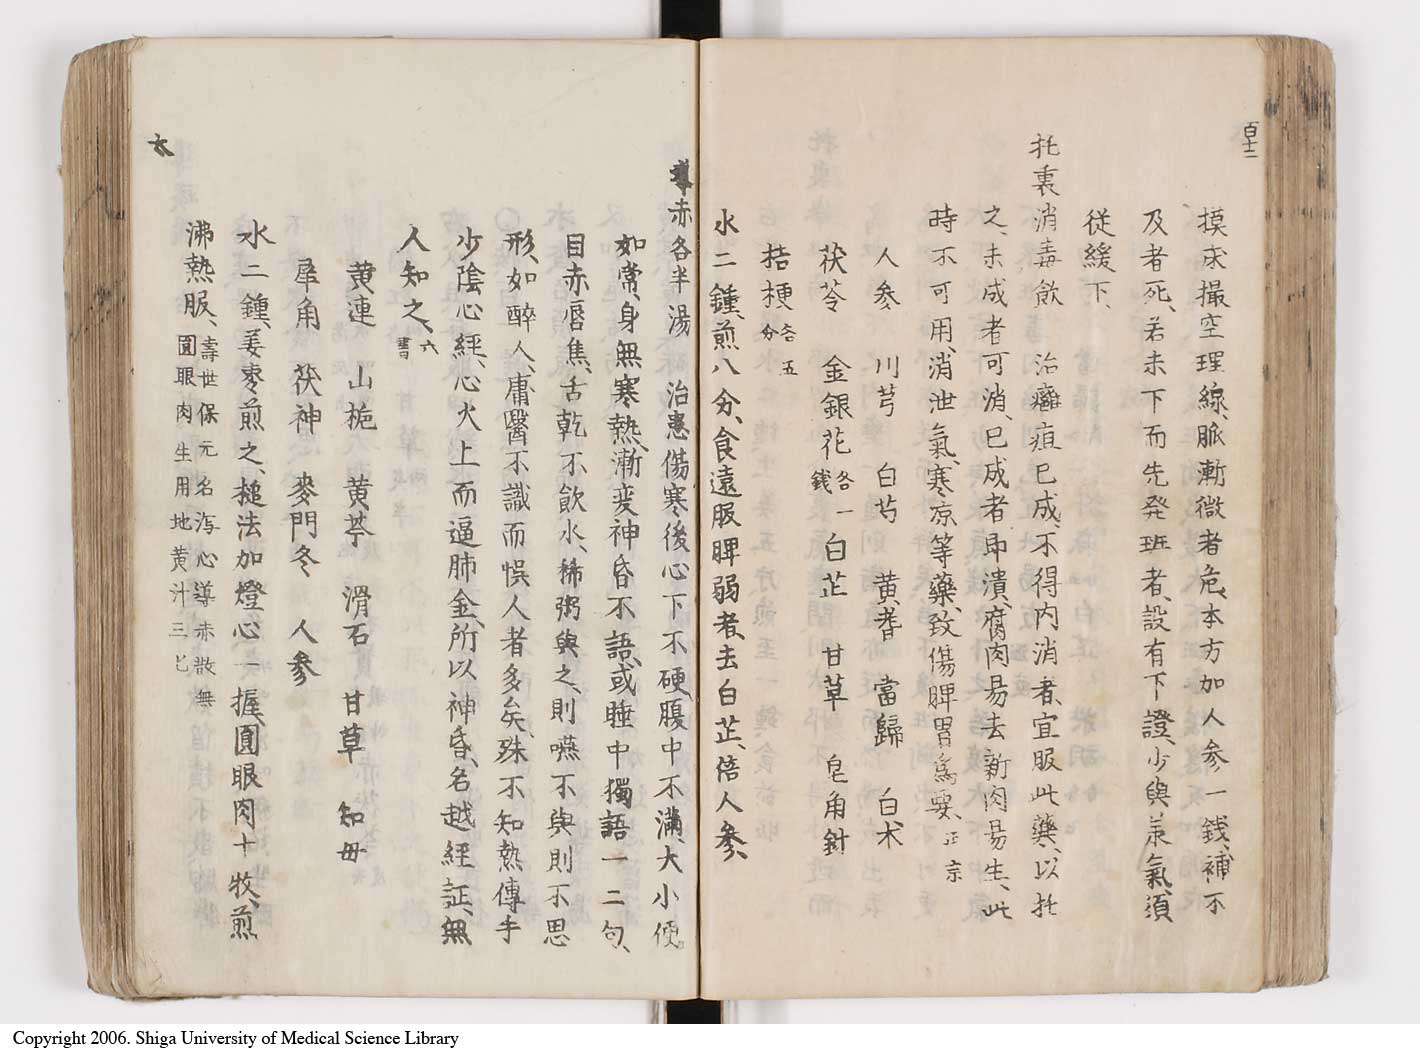 百十二
摸床撮空理線、脈漸微者危、本方加人参一錢、補不
及者死、若未下而先発班者、設有下證、少與承氣、須
従緩下、
托裏消毒飲　治癰疽已成、不得内消者、宜服此藥、以托
之、未成者可消、已成者即潰、腐肉易去、新肉易生、此
時不可用、消泄氣、寒凉等藥、致傷脾胃為要、正宗
人参　川芎　白芍　黄耆　當歸　白朮
茯苓　金銀花各一錢　白芷　甘草　皂角針
桔梗各五分
水二鍾、煎八分、食遠服、脾弱者、去白芷、倍人参、
導赤各半湯　治患傷寒後、心下不硬、腹中不満、大小便
如常、身無寒熱、漸変神昏不語、或睡中獨語一二句、
目赤唇焦、舌乾不飲水、稀粥與之、則嚥不與則不思
形、如醉人、庸醫不識而悞人者多矣、殊不知熱傳手
少陰心經、心火上而逼肺金、所以神昏、名越經証、無
人知之、六書
黄連　山梔　黄芩　滑石　甘草　知毋
犀角　茯神　麥門冬　人參
水二鍾、姜枣煎之、槌法加燈心一握、圓眼肉十枚、煎
沸熱服、壽世保元名瀉心導赤散無圓眼肉生用地黄汁三匕
六